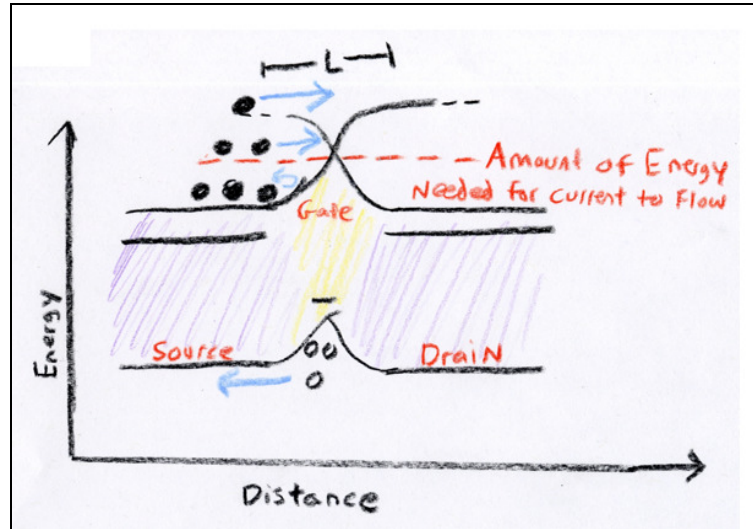 L
Amount of Energy
Needed for Current to Flow
Gate
Source
DraiN
Energy
Distance